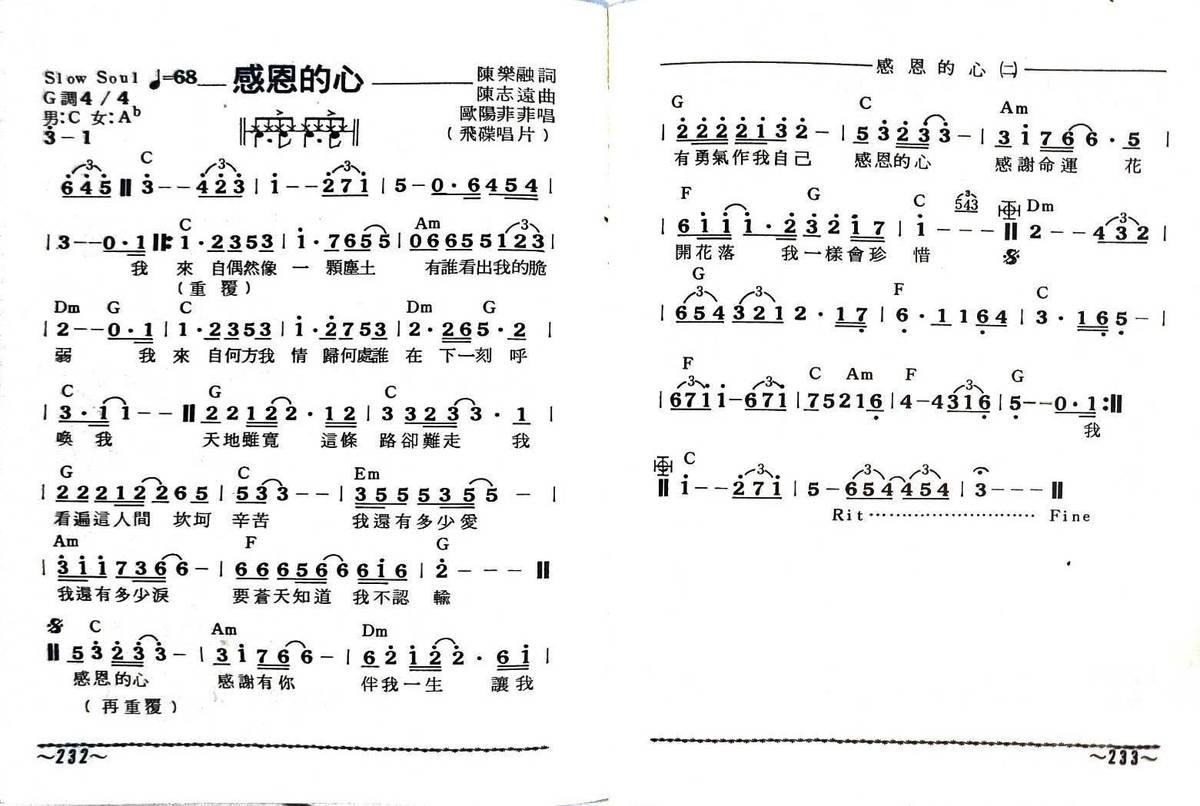 Slow Soul ♩=68 感恩的心 陳樂融詞
G調4/4 陳志遠曲
男:C 女:Ab 歐陽菲菲唱
3-1 (飛碟唱片)
C
645 || 3--423 | 1--271 | 5-0·6454 |
C Am
| 3--0·1 ||: 1·2353 | 1·7655 | 06655123 |
我 來 自偶然像 一 顆塵土 有誰看出我的脆
(重覆)
Dm G C Dm G
| 2--0·1 | 1·2353 | 1·2753 | 2·265·2 |
弱 我 來 自何方我 情 歸何處誰 在 下一刻 呼
C G C
| 3·11-- || 22122·12 | 33233·1 |
喚 我 天地雖寬 這條 路卻難走 我
G C Em
| 22212265 | 533-- | 3555355- |
看遍這人間 坎坷 辛苦 我還有多少愛
Am F G
| 3117366- | 666566616 | 2--- ||
我還有多少淚 要蒼天知道 我不認 輸
C Am Dm
|| 53233- | 31766- | 62122·61 |
感恩的心 感謝有你 伴我一生 讓我
(再重覆)
~232~
感恩的心(二)
G C Am
| 2222132- | 53233- | 31766·5 |
有勇氣作我自己 感恩的心 感謝命運 花
F G C 543 Dm
| 6111·23217 | 1--- || 2--432 |
開花落 我一樣會珍 惜
G F C
| 6543212·17 | 6·1164 | 3·165- |
F C Am F G
| 6711-671 | 75216 | 4-4316 | 5--0·1 :||
我
C
|| 1--271 | 5-654454 | 3--- ||
Rit························ Fine
~233~